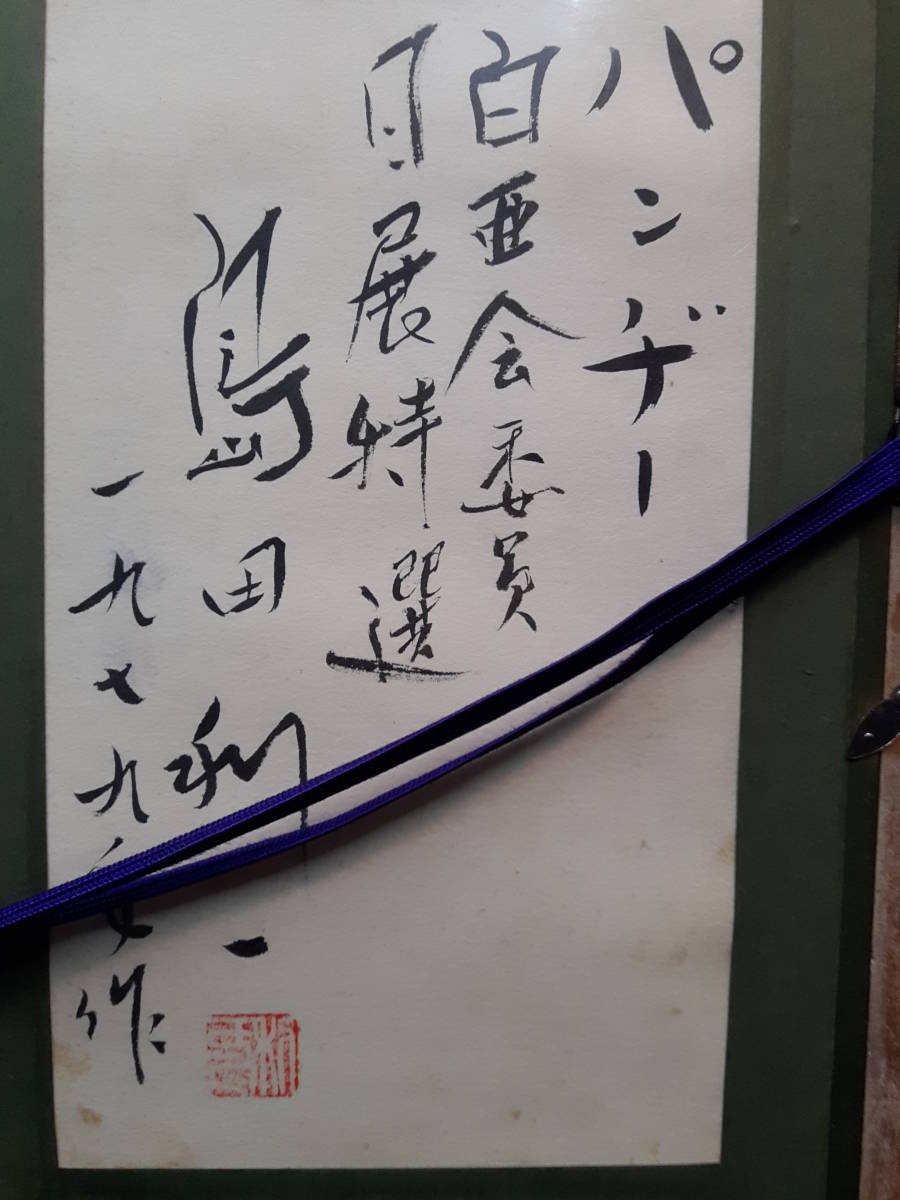 パンヂー
白亜会委員
日展特選
島田利一
一九七九作